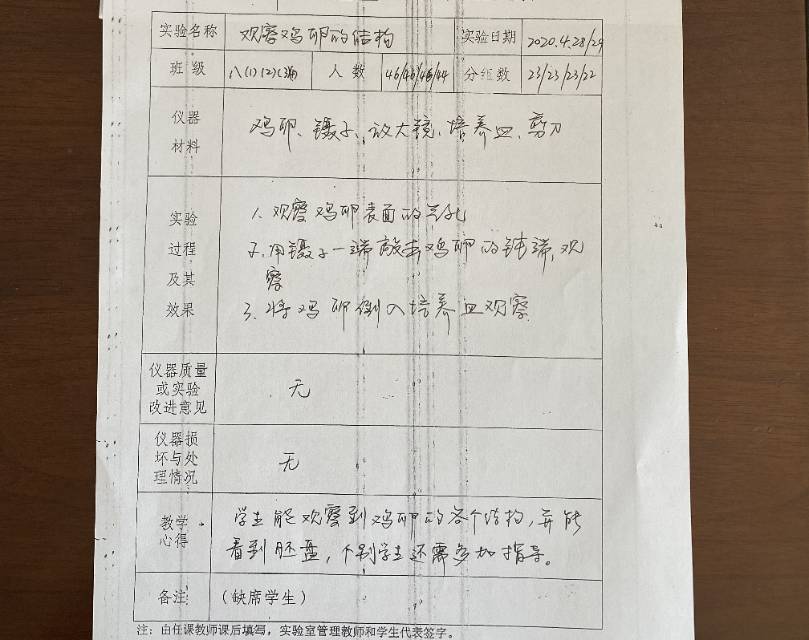 实验名称 观察鸡卵的结构 实验日期 2020.4.28/29
班 级 八(1)(2)(3) 人 数 46/46/46/44 分组数 23/23/23/22
仪器
材料
鸡卵、镊子、放大镜、培养皿、剪刀
实验
过程
及其
效果
1、观察鸡卵表面的气孔
2、用镊子一端敲击鸡卵的钝端,观
察
3、将鸡卵倒入培养皿观察
仪器质量
或实验
改进意见
无
仪器损
坏与处
理情况
无
教学
心得
学生能观察到鸡卵的各个结构,并能
看到胚盘,个别学生还需多加指导。
备注 (缺席学生)
注:由任课教师课后填写,实验室管理教师和学生代表签字。